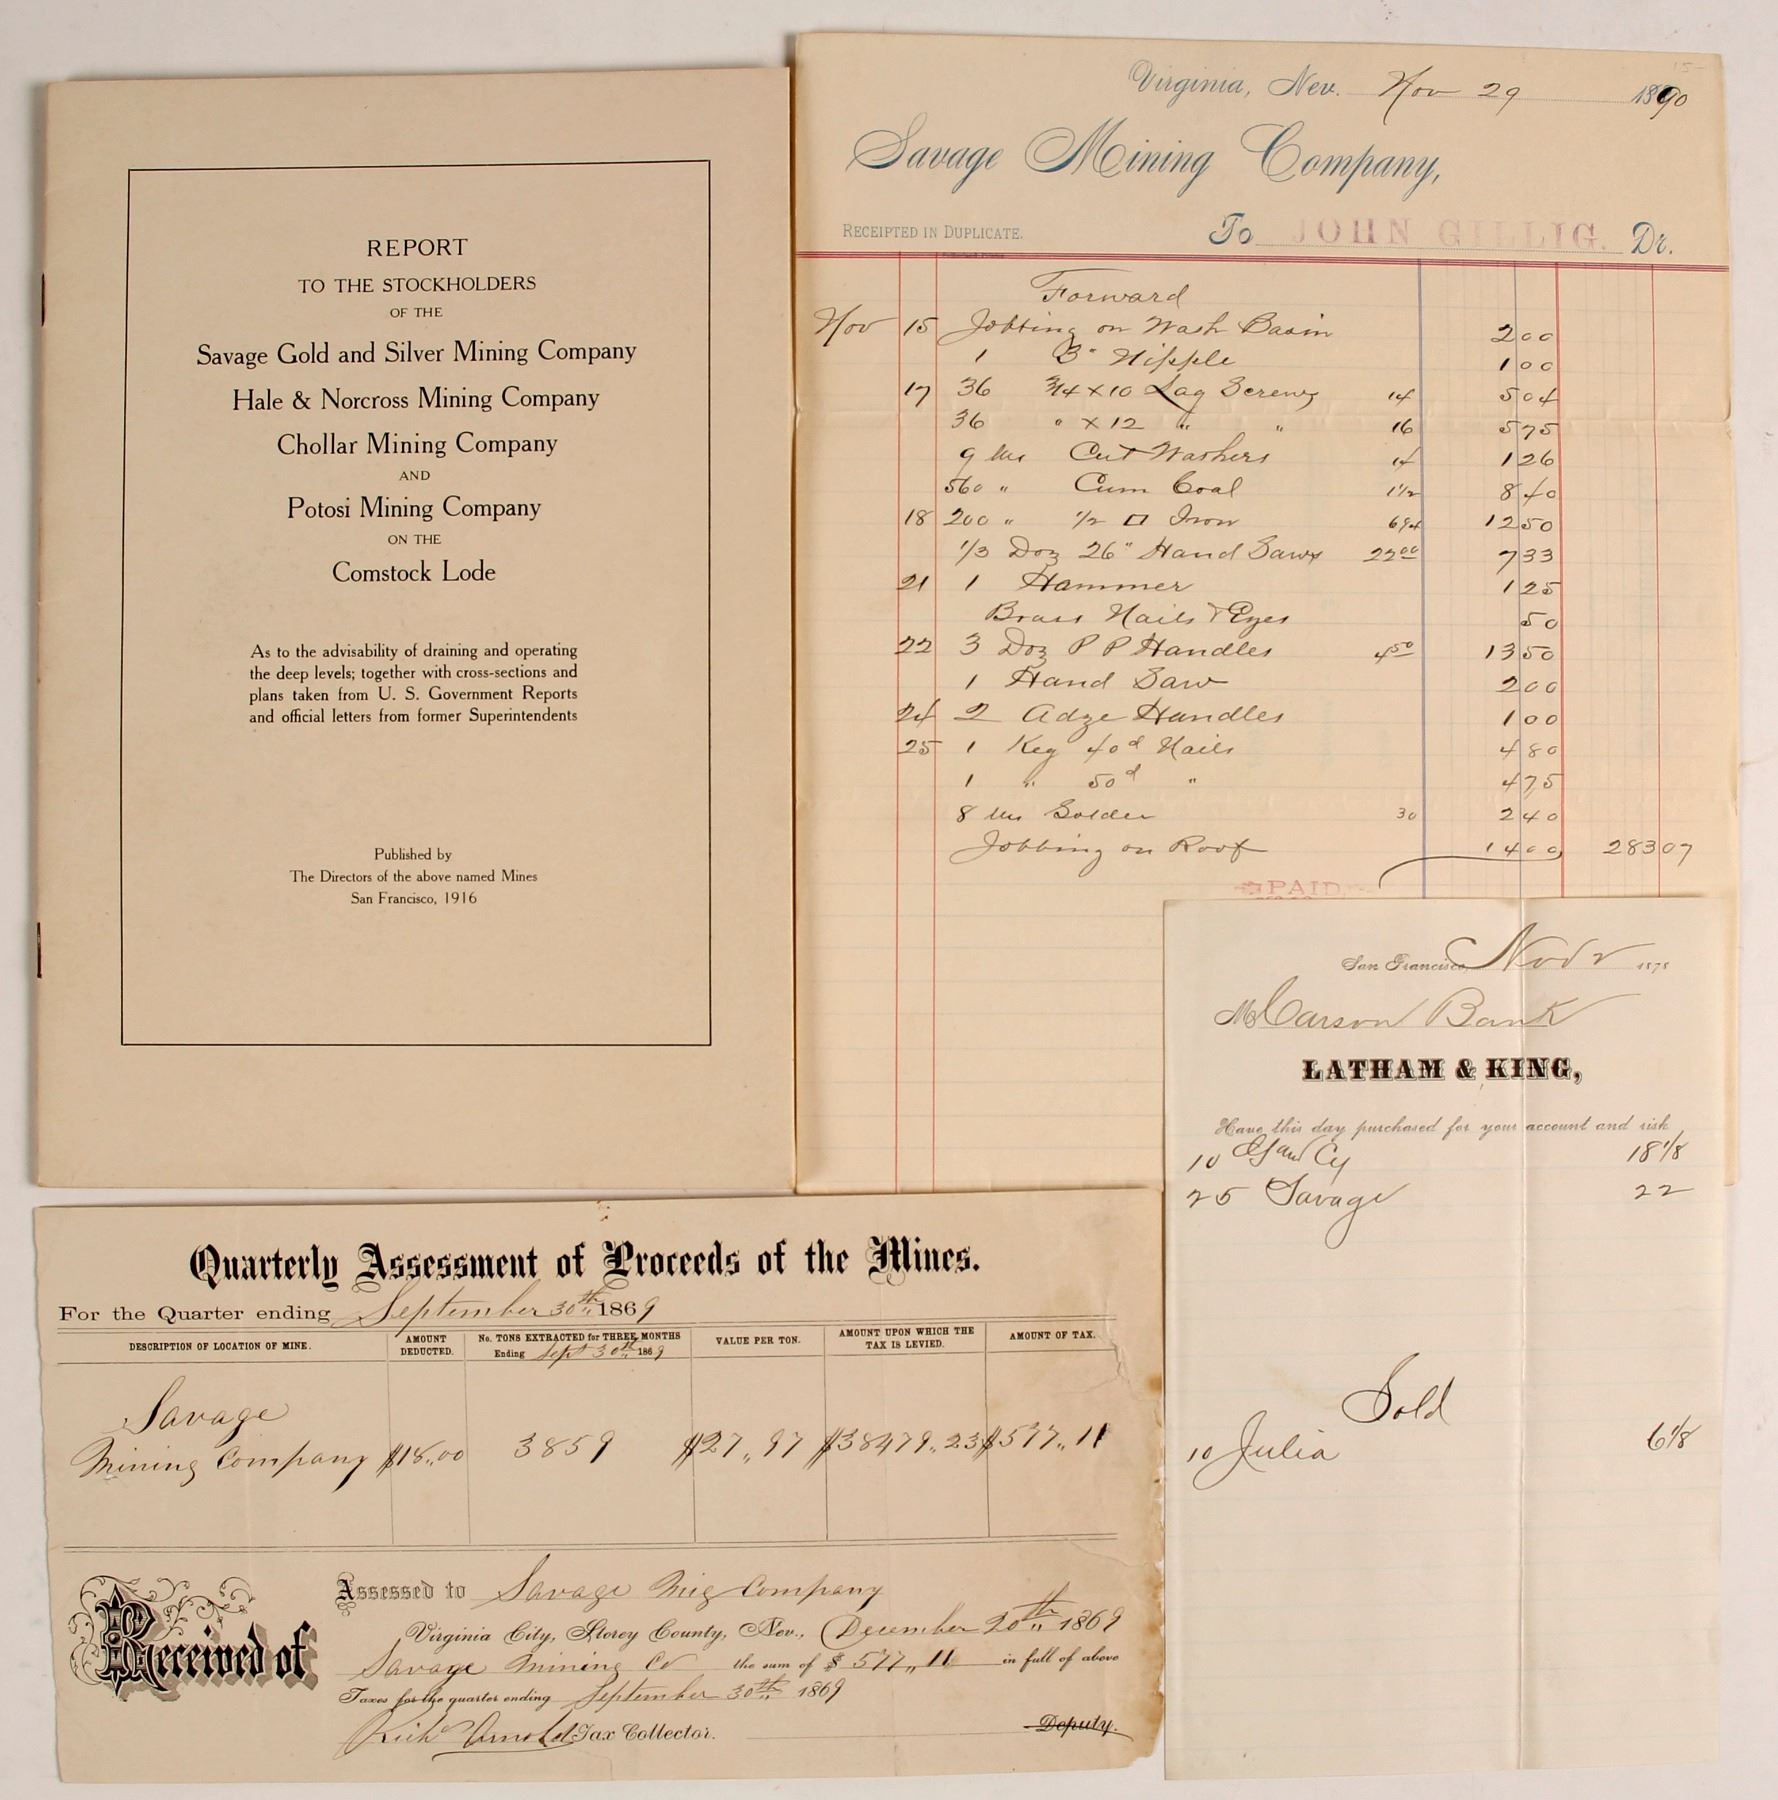 REPORT
TO THE STOCKHOLDERS
OF THE
Savage Gold and Silver Mining Company
Hale & Norcross Mining Company
Chollar Mining Company
AND
Potosi Mining Company
ON THE
Comstock Lode
As to the advisability of draining and operating
the deep levels; together with cross-sections and
plans taken from U. S. Government Reports
and official letters from former Superintendents
Published by
The Directors of the above named Mines
San Francisco, 1916
Virginia, Nev. Nov 29 1890
Savage Mining Company,
RECEIPTED IN DUPLICATE. To JOHN GILLIG. Dr.
Forward
Nov 15 Jobbing on Wash Basin 2 00
1 3" Nipple 1 00
17 36 3/4 x 10 Lag Screws 14 5 04
36 " x 12 " " 16 5 75
9 lbs Cut Washers 14 1 26
560 " Cum Coal 1 1/2 8 40
18 200 " 1/2 □ Iron 6 1/4 12 50
1/3 Doz 26" Hand Saws 22 00 7 33
21 1 Hammer 1 25
Brass Nails & Eyes 50
22 3 Doz P P Handles 4 50 13 50
1 Hand Saw 2 00
24 2 Adze Handles 1 00
25 1 Keg 40d Nails 4 80
1 " 50d " 4 75
8 lbs Solder 30 2 40
Jobbing on Roof 14 00 283 07
PAID
San Francisco, Nov 2 1878
M Carson Bank
LATHAM & KING,
Have this day purchased for your account and risk
10 Cy 18 1/8
25 Savage 22
Sold
10 Julia 6 1/8
Quarterly Assessment of Proceeds of the Mines.
For the Quarter ending September 30th 1869
DESCRIPTION OF LOCATION OF MINE. AMOUNT DEDUCTED. No. TONS EXTRACTED for THREE MONTHS Ending Sept 30th 1869 VALUE PER TON. AMOUNT UPON WHICH THE TAX IS LEVIED. AMOUNT OF TAX.
Savage
Mining Company $18.00 3859 $27.97 $38479.23 $577.11
Assessed to Savage Mig Company
Virginia City, Storey County, Nev., December 20th 1869
Received of Savage Mining Co the sum of $ 577.11 in full of above
Taxes for the quarter ending September 30th 1869
Richd Arnold Tax Collector. Deputy.